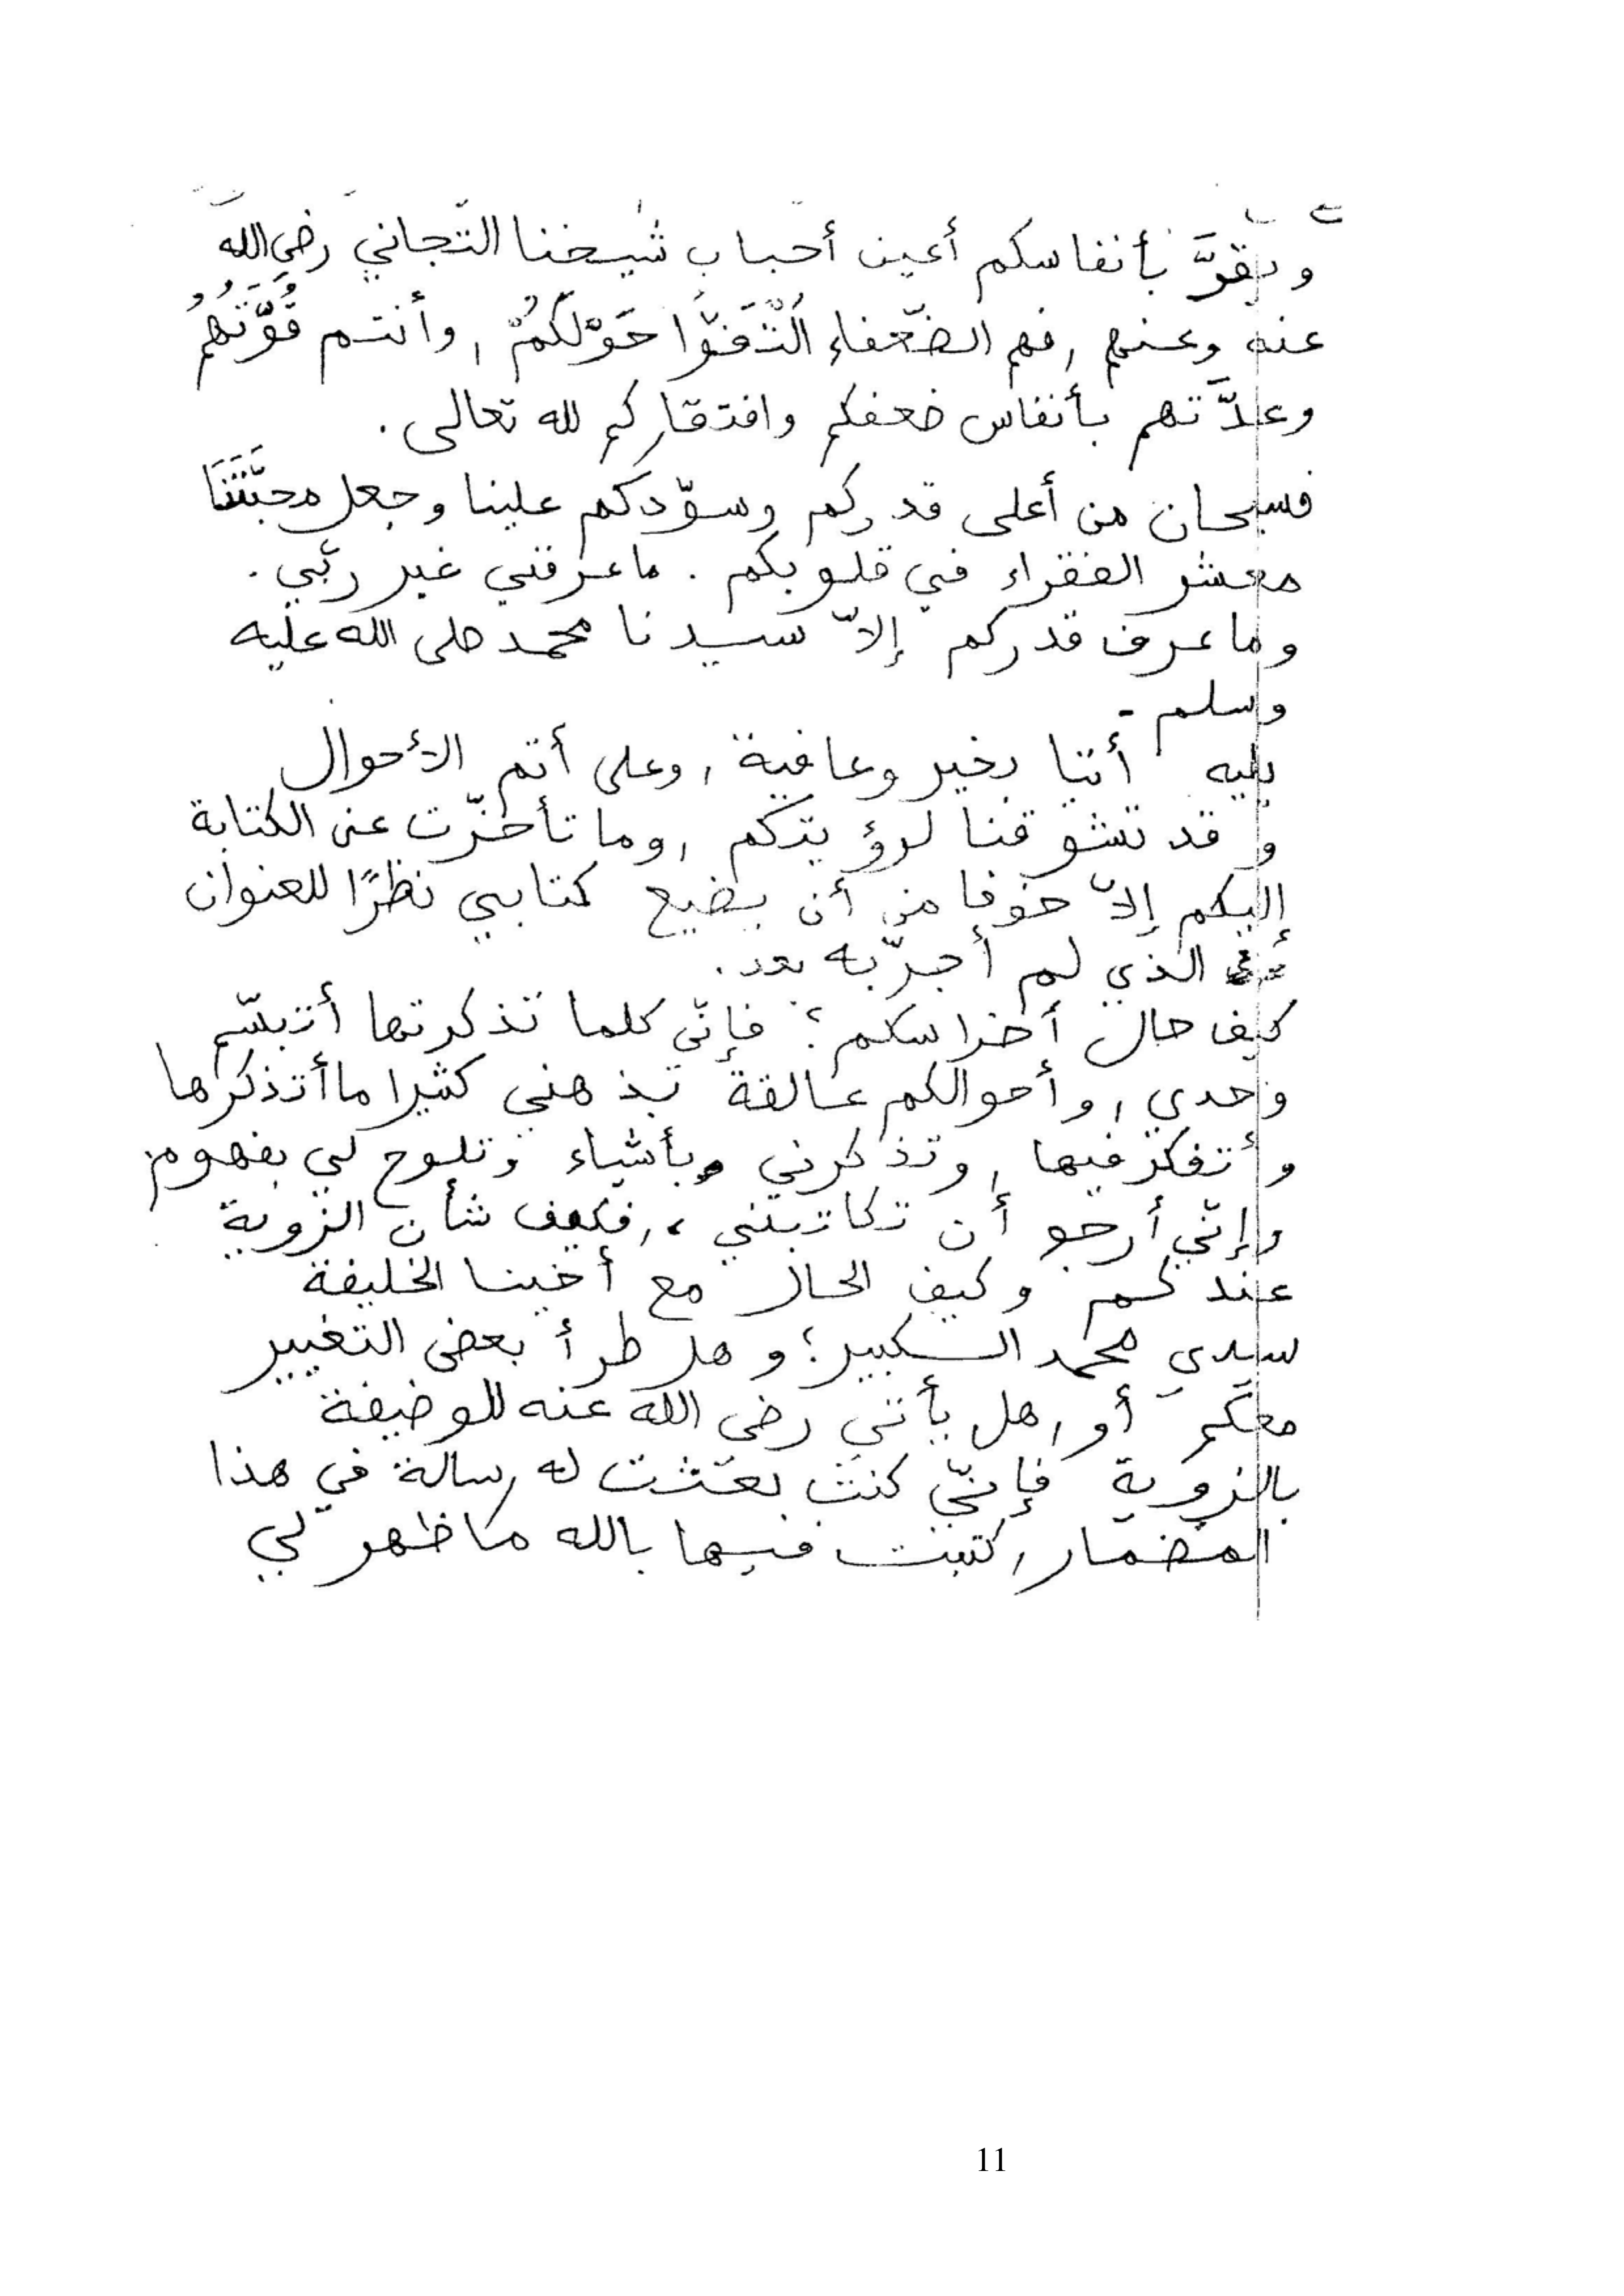 وتقوَّ بأنفاسكم أعين أحباب شيخنا التّجاني رضي الله
عنه وعنهم , فهم الضّعفاء الْتَفَوّا حَوْلَكُمْ , وأنتم قُوَّتُهُمْ
وعدَّتهم بأنفاس ضعفكم وافتقاركم لله تعالى .
فسبحان من أعلى قدركم وسوّدكم علينا وجعل محبّتَنَا
معشر الفقراء في قلوبكم . ما عرفني غير ربّي .
وما عرف قدركم إلاّ سيدنا محمد صلى الله عليه
وسلم -
يليه أننا بخير وعافية , وعلى أتم الأحوال
وقد تشوقنا لرؤيتكم , وما تأخّرت عن الكتابة
إليكم إلاّ خوفا من أن يضيع كتابي نظرًا للعنوان
الذي لم أجرّبه بعد .
كيف حال أضراسكم ؟ فإنّي كلما تذكرتها أتبسّم
وحدي , وأحوالكم عالقة بذهني كثيرا ما أتذكرها
وأتفكر فيها , وتذكرني بأشياء وتلوح لي بفهوم
وإنّي أرجو أن تكاتبني , فكيف شأن الزوية
عندكم وكيف الحال مع أخينا الخليفة
سيدي محمد الكبير ؟ وهل طرأ بعض التغيير
معكم أو هل يأتي رضي الله عنه للوضيفة
بالزوية فإنّي كنت بعثت له رسالة في هذا
المضمار , كتبت فيها بالله ما ظهر لي
11